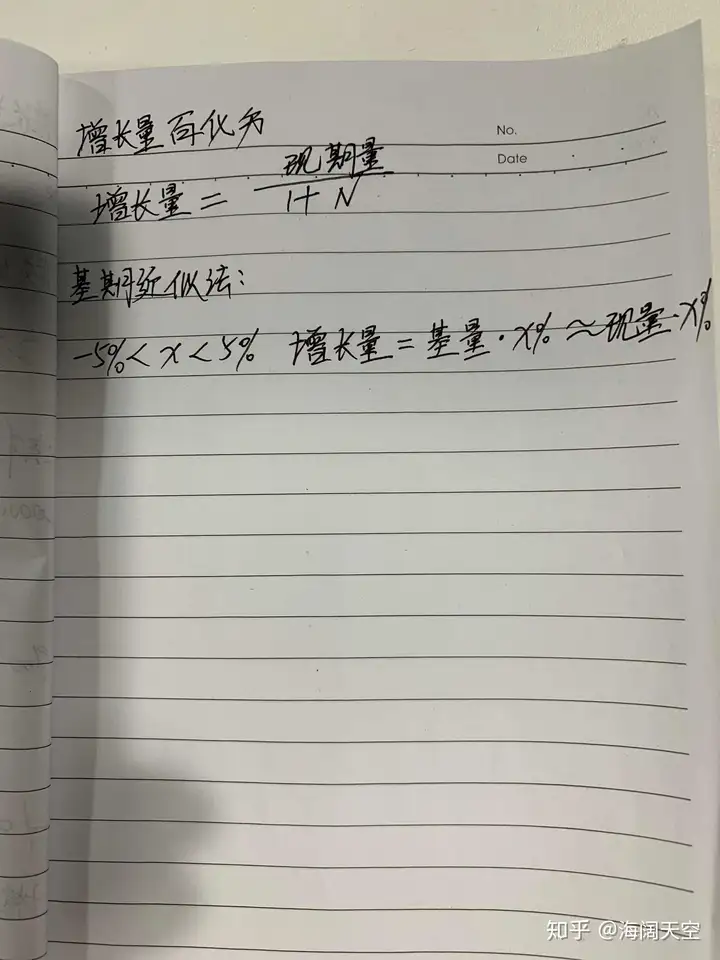 No.
Date
增长量百化分
增长量 = 现期量 / 1+N
基期近似法:
-5% < x < 5% 增长量 = 基量·x% ≈ 现量·x%
知乎 @海阔天空